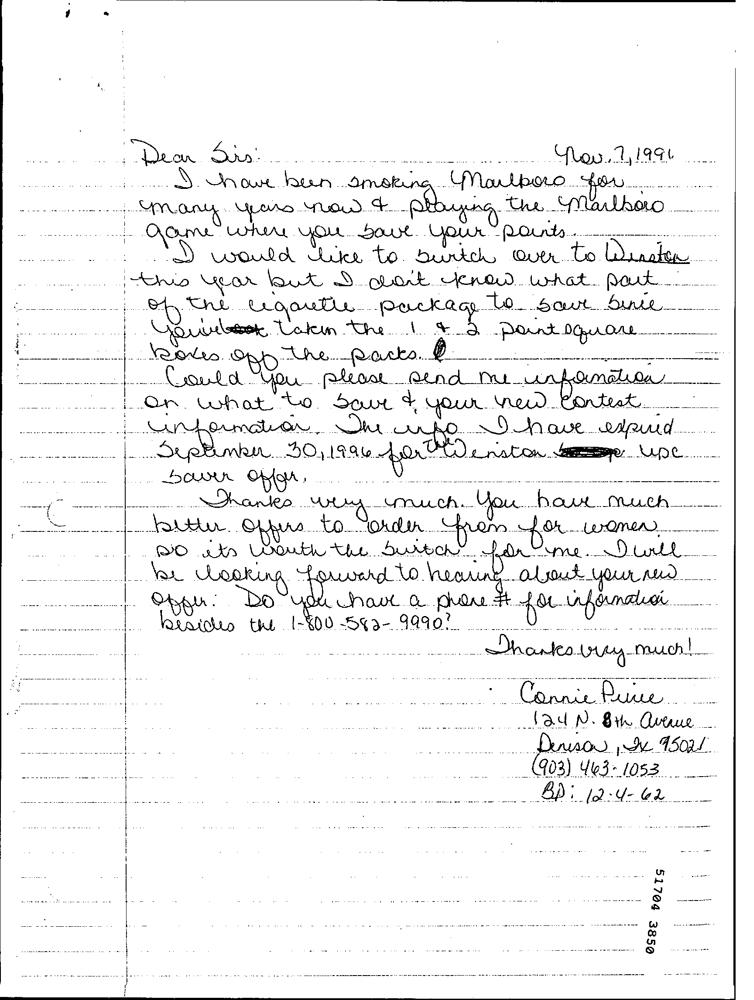 Dear Sirs: Nov. 7, 1996
I have been smoking Marlboro for
many years now & playing the Marlboro
game where you save your points.
I would like to switch over to Winston
this year but I don't know what part
of the cigarette package to save since
you've taken the 1 & 2 point square
boxes off the packs.
Could you please send me information
on what to save & your new contest
information. The info I have expired
September 30, 1996 for the Winston UPC
saver offer.
Thanks very much. You have much
better offers to order from for women
so its worth the switch for me. I will
be looking forward to hearing about your new
offer. Do you have a phone # for information
besides the 1-800-582-9990?
Thanks very much!
Connie Peirce
124 N. 8th Avenue
Denison, Tx 75021
(903) 463-1053
BD: 12-4-62
51704 3850